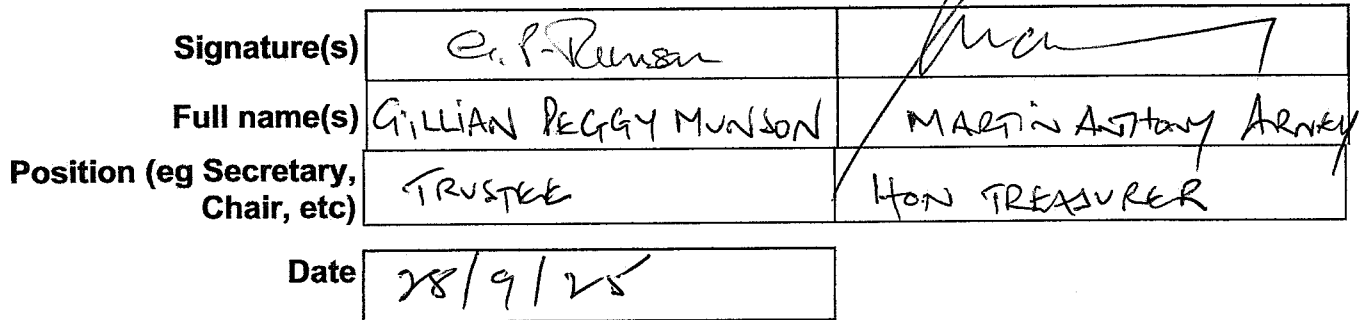 Signature(s) G. P. Munson
Full name(s) GILLIAN PEGGY MUNSON MARTIN ANTHONY ARNEY
Position (eg Secretary, TRUSTEE HON TREASURER
Chair, etc)
Date 28/9/25